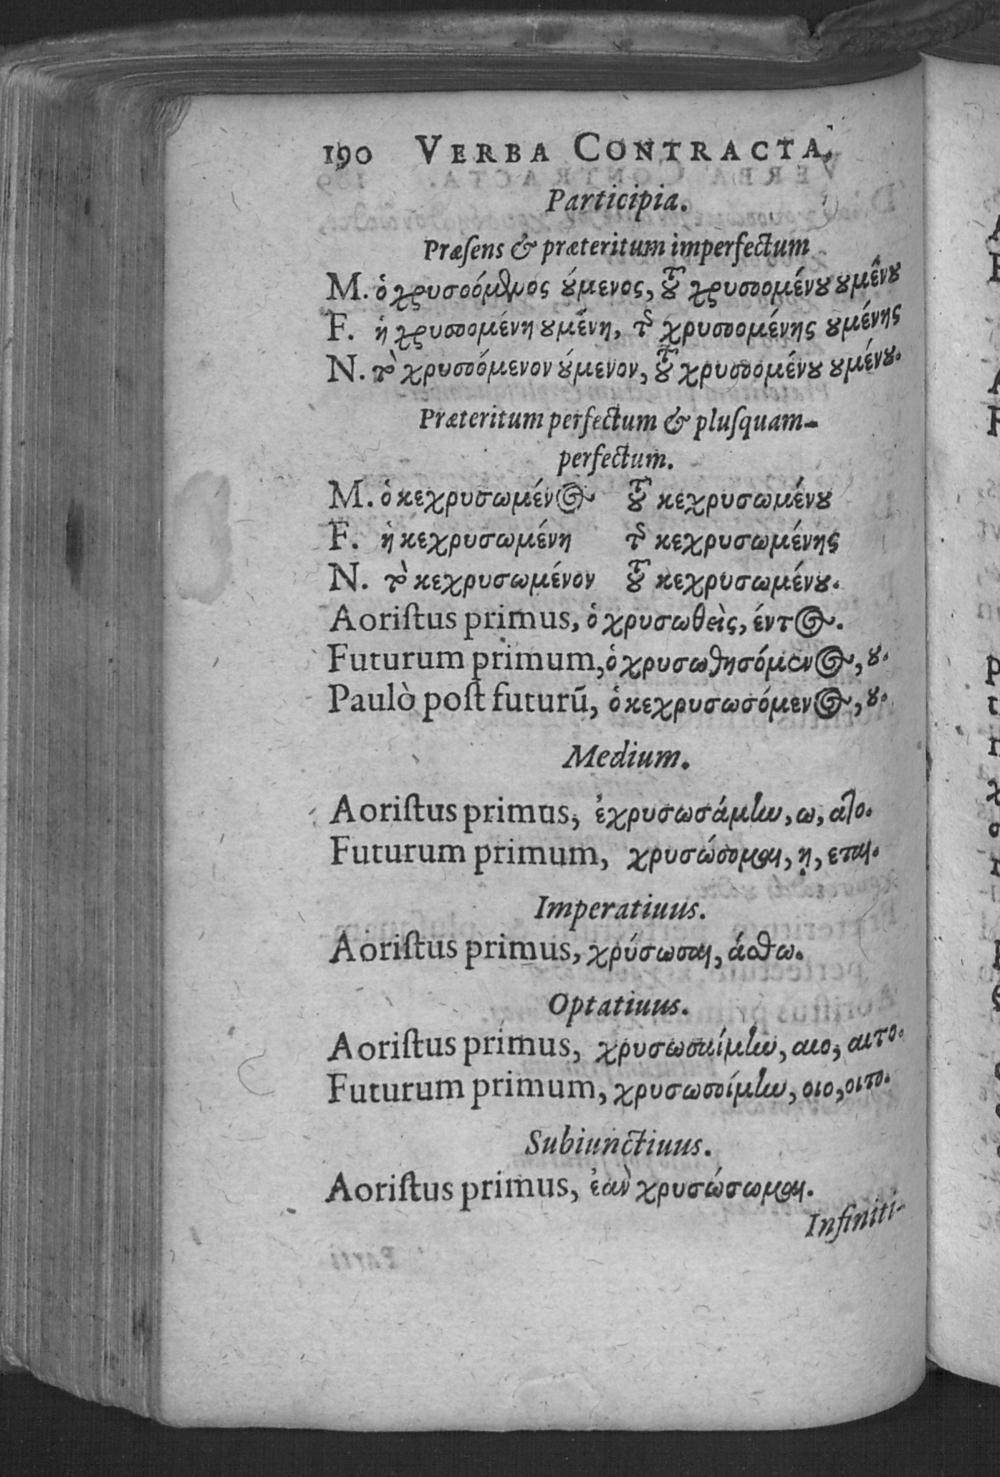 190 VERBA CONTRACTA,
Participia.
Præſens & præteritum imperfectum
M. ὁ χρυσοόμενος ούμενος, τοῦ χρυσοομένου ουμένου
F. ἡ χρυσοομένη ουμένη, τῆς χρυσοομένης ουμένης
N. τὸ χρυσοόμενον ούμενον, τοῦ χρυσοομένου ουμένου.
Præteritum perfectum & pluſquam-
perfectum.
M. ὁ κεχρυσωμένος τοῦ κεχρυσωμένου
F. ἡ κεχρυσωμένη τῆς κεχρυσωμένης
N. τὸ κεχρυσωμένον τοῦ κεχρυσωμένου.
Aoriſtus primus, ὁ χρυσωθεὶς, έντος.
Futurum primum, ὁ χρυσωθησόμενος, ου.
Paulò poſt futurū, ὁ κεχρυσωσόμενος, ου.
Medium.
Aoriſtus primus, ἐχρυσωσάμην, ω, ατο.
Futurum primum, χρυσώσομαι, ῃ, εται.
Imperatiuus.
Aoriſtus primus, χρύσωσαι, άσθω.
Optatiuus.
Aoriſtus primus, χρυσωσαίμην, αιο, αιτο.
Futurum primum, χρυσωσοίμην, οιο, οιτο.
Subiunctiuus.
Aoriſtus primus, ἐὰν χρυσώσωμαι.
Infiniti-